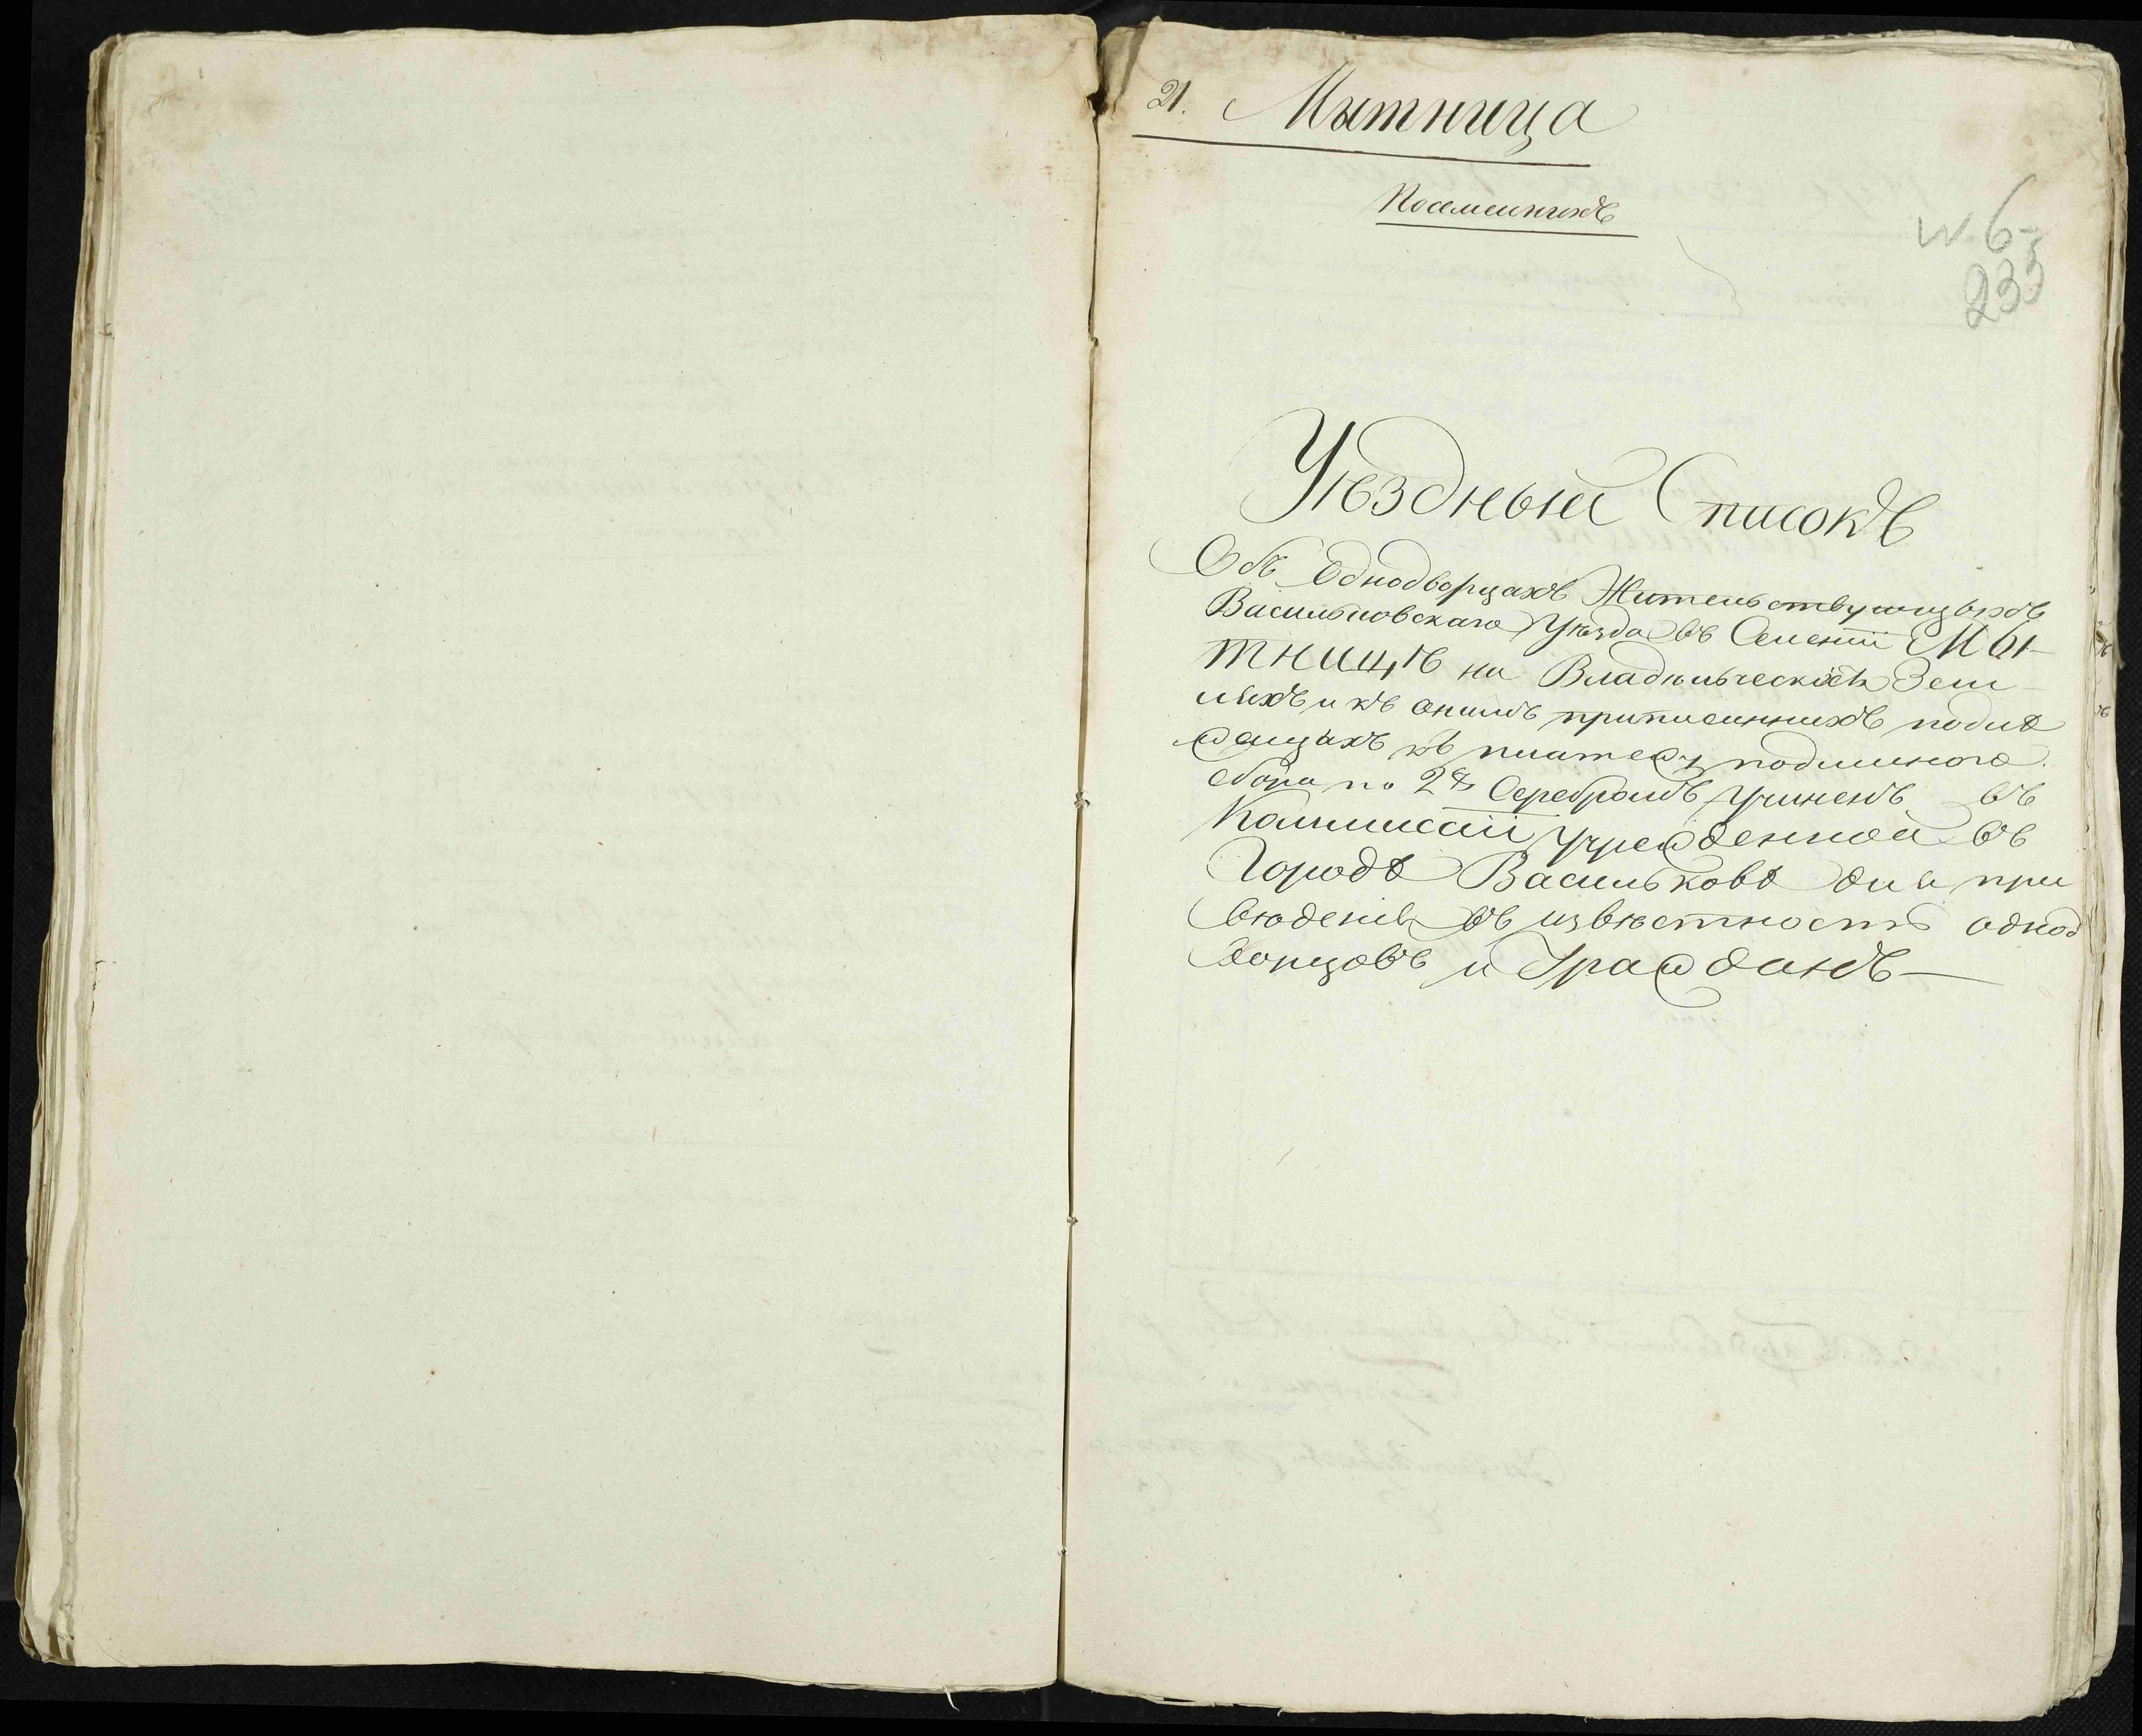 21. Мытница
Посемейныхъ
6
233
Уѣздный Списокъ
Объ Однодворцахъ Жительствующыхъ
Васильковскаго Уѣзда въ Селенiи Мы-
тницѣ на Владѣльческихъ Зем-
ляхъ и къ онымъ приписанныхъ подле
жащихъ къ платежу подымного
сбора по 2 Серебромъ учиненъ въ
Коммисiи учрежденной въ
Городѣ Васильковѣ для при
вѣденiя въ извѣстность однод
ворцовъ и Гражданъ—